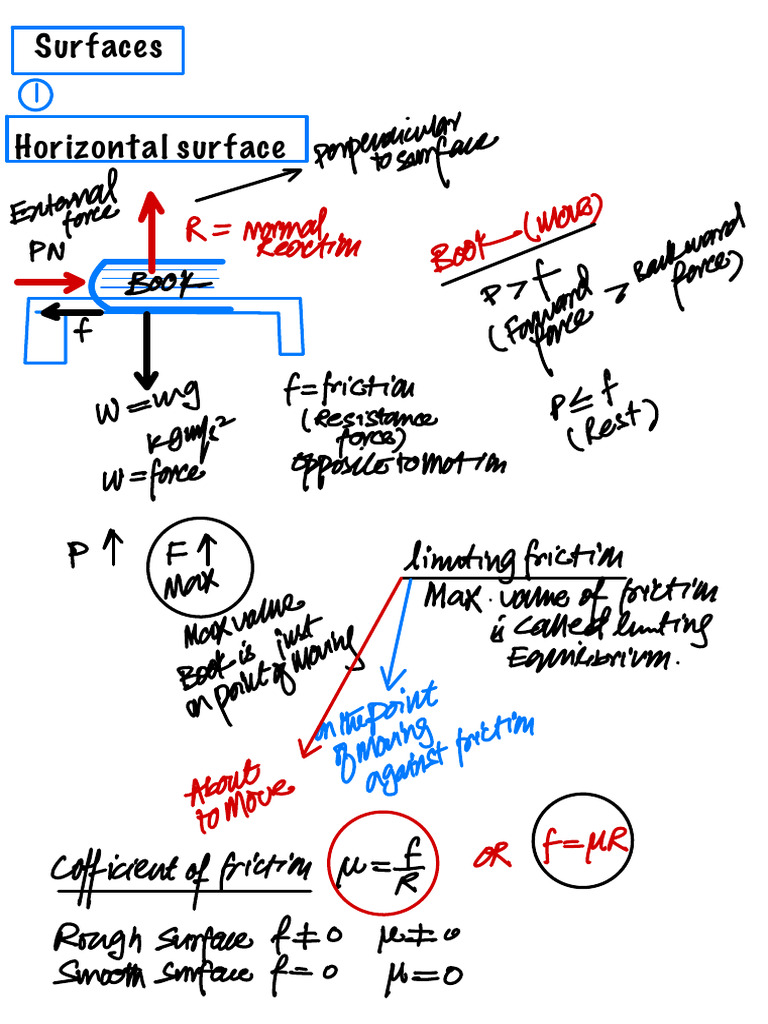 Surfaces
1
Horizontal surface
perpendicular
to surface
External
force
PN
R = normal
Reaction
Book
f
W = mg
kgm/s²
W = force
f = friction
(Resistance
force)
opposite to motion
Book (Move)
P > f
(Forward
force > Backward
force)
P ≤ f
(Rest)
P ↑
F ↑
Max
Max value
Book is just
on point of moving
limiting friction
Max. value of friction
is called limiting
Equilibrium.
on the point
of moving
against friction
About
to move
Cofficient of friction μ = f/R OR f = μR
Rough surface f ≠ 0 μ ≠ 0
Smooth surface f = 0 μ = 0